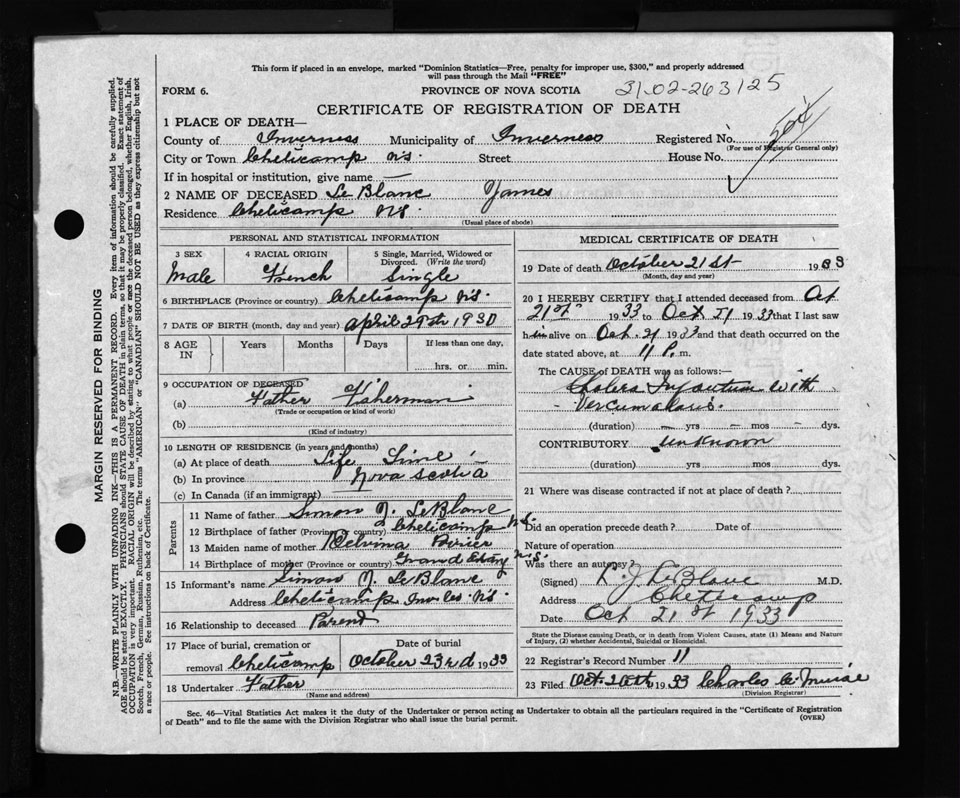 This form if placed in an envelope, marked "Dominion Statistics—Free, penalty for improper use, $300," and properly addressed
will pass through the Mail "FREE"
FORM 6. PROVINCE OF NOVA SCOTIA 3102-263125
CERTIFICATE OF REGISTRATION OF DEATH
1 PLACE OF DEATH—
County of Inverness Municipality of Inverness Registered No.
(For use of Registrar General only)
City or Town Cheticamp N.S. Street House No.
If in hospital or institution, give name —
2 NAME OF DECEASED Le Blanc James
Residence Cheticamp N.S.
(Usual place of abode)
PERSONAL AND STATISTICAL INFORMATION
3 SEX 4 RACIAL ORIGIN 5 Single, Married, Widowed or Divorced. (Write the word)
Male French Single
6 BIRTHPLACE (Province or country) Cheticamp N.S.
7 DATE OF BIRTH (month, day and year) April 29th 1930
8 AGE IN Years Months Days If less than one day,
hrs. or min.
9 OCCUPATION OF DECEASED
(a) Father Fisherman
(Trade or occupation or kind of work)
(b)
(Kind of industry)
10 LENGTH OF RESIDENCE (in years and months)
(a) At place of death Life Time
(b) In province Nova Scotia
(c) In Canada (if an immigrant)
Parents
11 Name of father Simon J. LeBlanc
12 Birthplace of father (Province or country) Cheticamp N.S.
13 Maiden name of mother
14 Birthplace of mother (Province or country) Grand Etang N.S.
15 Informant's name Simon J. LeBlanc
Address Cheticamp Inv Co. N.S.
16 Relationship to deceased Parent
17 Place of burial, cremation or Date of burial
removal Cheticamp October 23rd 1933
18 Undertaker Father
(Name and address)
MEDICAL CERTIFICATE OF DEATH
19 Date of death October 21st 1933
(Month, day and year)
20 I HEREBY CERTIFY that I attended deceased from Oct
21st 1933 to Oct 21 1933 that I last saw
him alive on Oct. 21 1933 and that death occurred on the
date stated above, at 11 P. m.
The CAUSE of DEATH was as follows:—
Cholera Infantum with
(duration) — yrs — mos — dys.
CONTRIBUTORY unknown
(duration) yrs mos dys.
21 Where was disease contracted if not at place of death?
Did an operation precede death? Date of
Nature of operation
Was there an autopsy?
(Signed) LeBlanc M.D.
Address Cheticamp
Date Oct 21st 1933
State the Disease causing Death, or in death from Violent Causes, state (1) Means and Nature
of Injury, (2) whether Accidental, Suicidal or Homicidal.
22 Registrar's Record Number 11
23 Filed Oct. 26th 1933 Charles
(Division Registrar)
Sec. 46—Vital Statistics Act makes it the duty of the Undertaker or person acting as Undertaker to obtain all the particulars required in the "Certificate of Registration
of Death" and to file the same with the Division Registrar who shall issue the burial permit. (OVER)
MARGIN RESERVED FOR BINDING
N.B.—WRITE PLAINLY WITH UNFADING INK—THIS IS A PERMANENT RECORD. Every item of information should be carefully supplied.
AGE should be stated EXACTLY. PHYSICIANS should STATE CAUSE OF DEATH in plain terms, so that it may be properly classified. Exact statement of
OCCUPATION is very important. RACIAL ORIGIN will be described by stating to what people or race the deceased person belonged, whether English, Irish,
Scotch, French, German, Russian, Ruthenian, etc. The terms "AMERICAN" or "CANADIAN" SHOULD NOT BE USED as they express citizenship but not
a race or people. See instructions on back of Certificate.